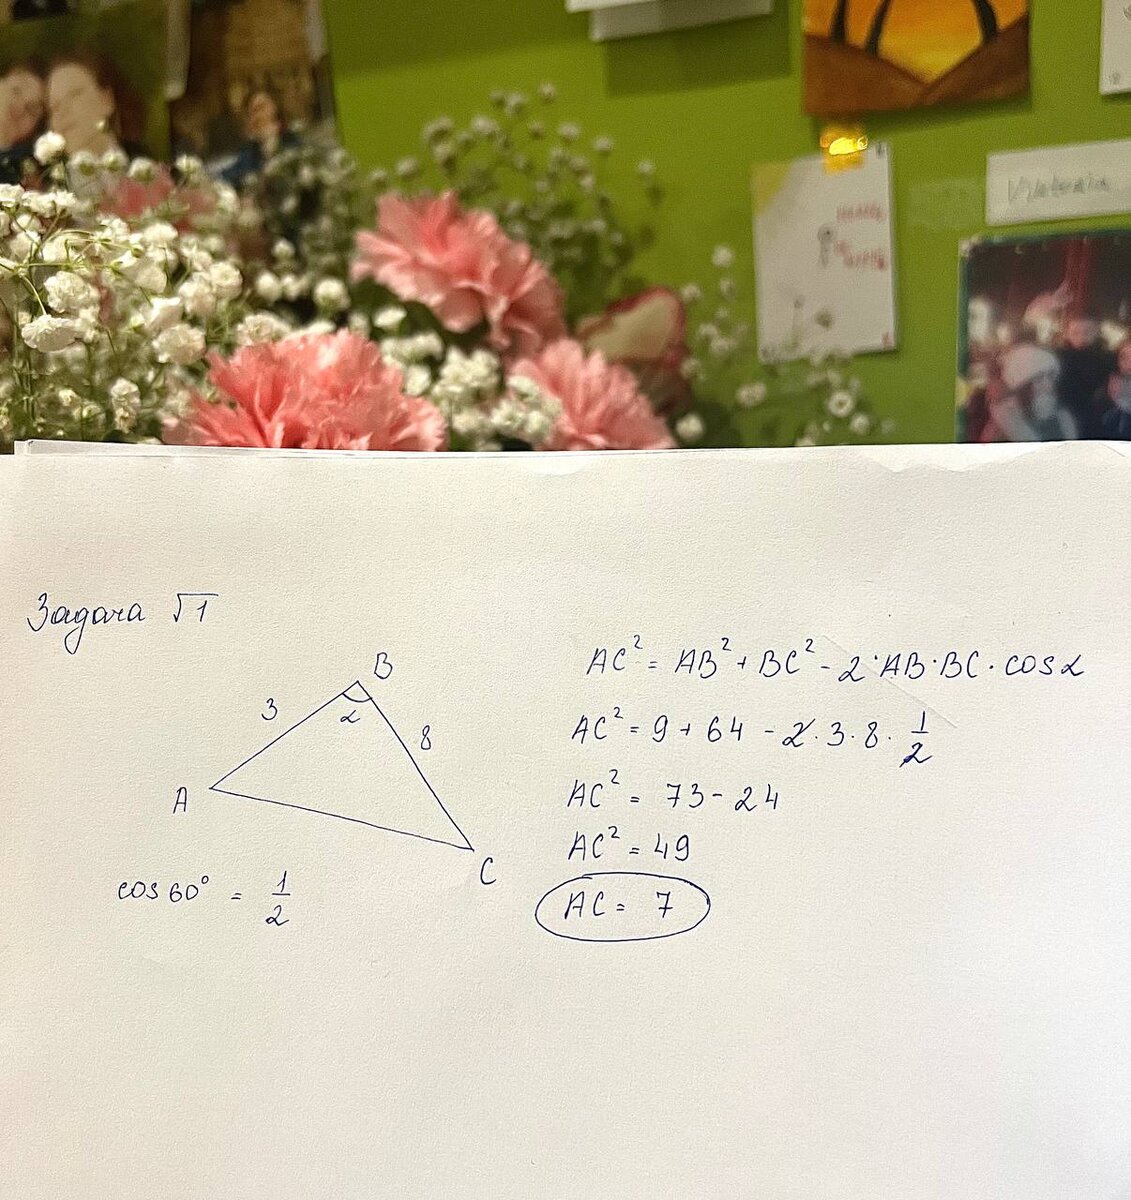 Задача √1
B
3
α
8
A
C
cos 60° = 1/2
AC² = AB² + BC² - 2·AB·BC·cosα
AC² = 9 + 64 - 2·3·8·1/2
AC² = 73 - 24
AC² = 49
AC = 7